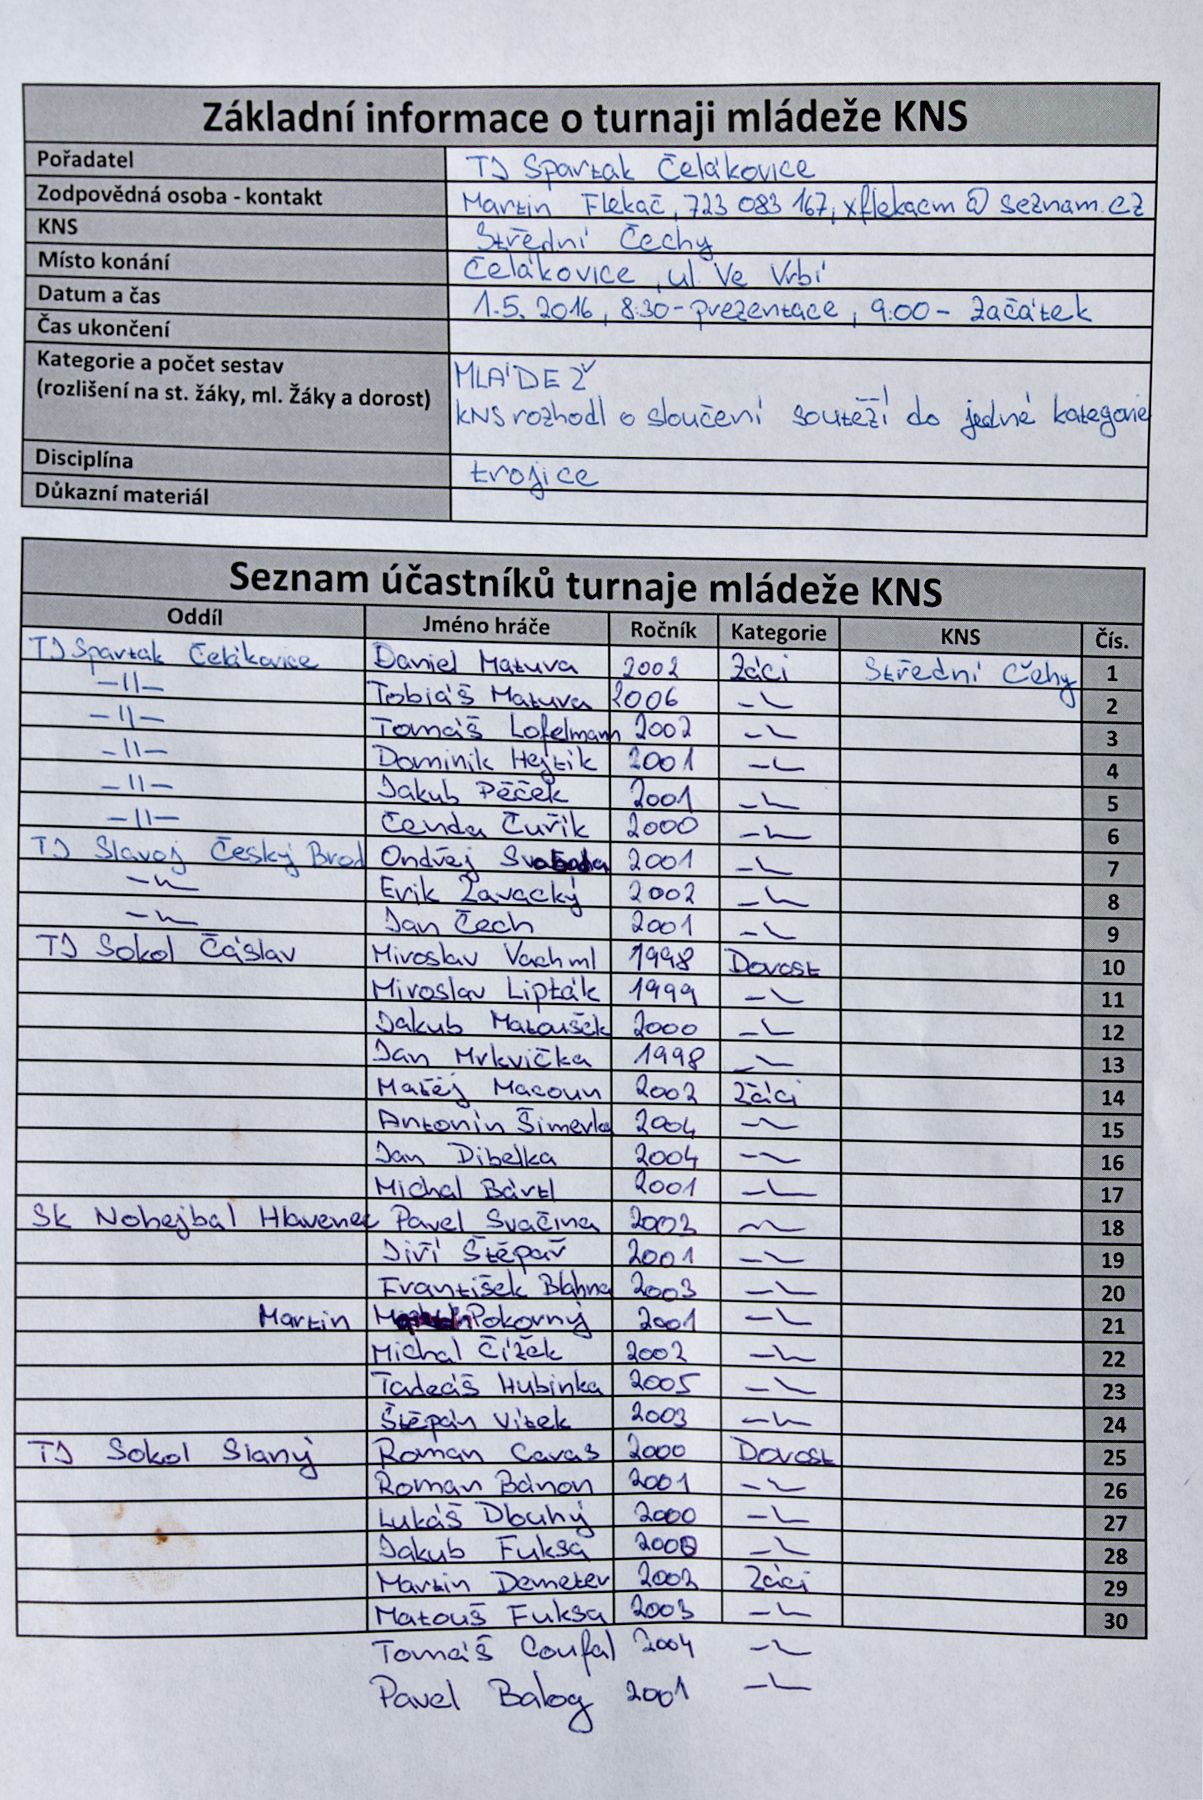 Základní informace o turnaji mládeže KNS
Pořadatel TJ Spartak Čelákovice
Zodpovědná osoba - kontakt Martin Flekač, 723 083 167, xflekacm@seznam.cz
KNS Střední Čechy
Místo konání Čelákovice, ul. Ve Vrbí
Datum a čas 1.5. 2016, 8:30 - prezentace, 9:00 - začátek
Čas ukončení
Kategorie a počet sestav MLÁDEŽ
(rozlišení na st. žáky, ml. Žáky a dorost) KNS rozhodl o sloučení soutěží do jedné kategorie
Disciplína trojice
Důkazní materiál
Seznam účastníků turnaje mládeže KNS
Oddíl Jméno hráče Ročník Kategorie KNS Čís.
TJ Spartak Čelákovice Daniel Matuva 2002 Žáci Střední Čehy 1
-II- Tobiáš Matuva 2006 -"- 2
-II- Tomáš Lofelmann 2002 -"- 3
-II- Dominik Hejtík 2001 -"- 4
-II- Jakub Pěček 2001 -"- 5
-II- Čenda Čuřík 2000 -"- 6
TJ Slavoj Český Brod Ondřej Svoboda 2001 -"- 7
-"- Erik Zavacký 2002 -"- 8
-"- Jan Čech 2001 -"- 9
TJ Sokol Čáslav Miroslav Vachml 1998 Dorost 10
Miroslav Lipták 1999 -"- 11
Jakub Matoušek 2000 -"- 12
Jan Mrkvička 1998 -"- 13
Matěj Macoun 2002 Žáci 14
Antonín Šimerka 2004 -"- 15
Jan Dibelka 2004 -"- 16
Michal Bártl 2001 -"- 17
SK Nohejbal Hlavenec Pavel Svačina 2002 -"- 18
Jiří Štěpař 2001 -"- 19
František Blahna 2003 -"- 20
Martin Pokorný 2001 -"- 21
Michal Čížek 2002 -"- 22
Tadeáš Hubinka 2005 -"- 23
Štěpán Vítek 2003 -"- 24
TJ Sokol Slaný Roman Cavas 2000 Dorost 25
Roman Bánon 2001 -"- 26
Lukáš Dlouhý 2000 -"- 27
Jakub Fuksa 2000 -"- 28
Martin Demeter 2002 Žáci 29
Matouš Fuksa 2003 -"- 30
Tomáš Coufal 2004 -"-
Pavel Balog 2001 -"-